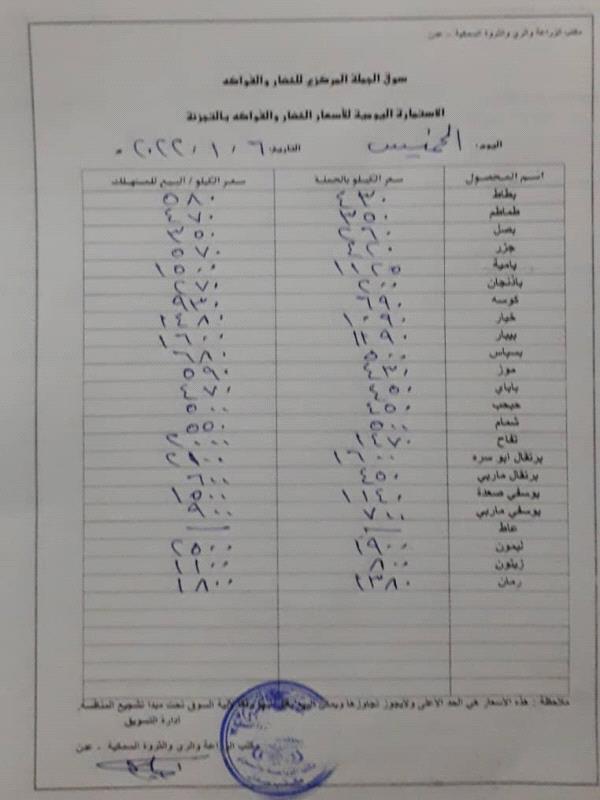 مكتب الزراعة والري والثروة السمكية - عدن
سوق الجملة المركزي للخضار والفواكه
الاستمارة اليومية للأسعار الخضار والفواكه بالتجزئة
اليوم: الخميس التاريخ: ٦ / ١ / ٢٠٢٢ م
اسم المحصول سعر الكيلو بالجملة سعر الكيلو / البيع للمستهلك
بطاط ٤٣٠ ٥٨٠
طماطم ٣٥٠ ٤٧٠
بصل ٣٥٠
جزر ٥٧٠
بامية ١١٢٥ ١٥٠٠
باذنجان ٢٠٠ ٢٧٠
كوسه ٦٩٠ ٩٣٠
خيار ١٠٩٠ ١٤٨٠
بيبار ١١٩٠ ١٦٠٠
بسباس ٥٠٠ ٦٨٠
موز ٤٣٠ ٥٩٠
باباي ٤٧٠
حبحب ٤٥٠ ٥٠٠
شمام ٥٠٠ ٥٥٠
تفاح ١٤٧٠ ٢٠٠٠
برتقال ابو سره ١٦٠٠ ٢١٠٠
برتقال ماربي ٤٥٠ ٦٠٠
يوسفي صعدة ١١٤٠ ١٥٠٠
يوسفي ماربي ٧٠٠ ٩٠٠
عاط
ليمون ١٩٠٠ ٢٥٠٠
زيتون ٨٠٠ ١١٠٠
رمان ١٣٨٠ ١٨٠٠
ملاحظة : هذه الأسعار هي الحد الأعلى ولايجوز تجاوزها ويمكن البيع السوق تحت مبدا تشجيع المنافسة.
ادارة التسويق
مكتب الزراعة والري والثروة السمكية - عدن